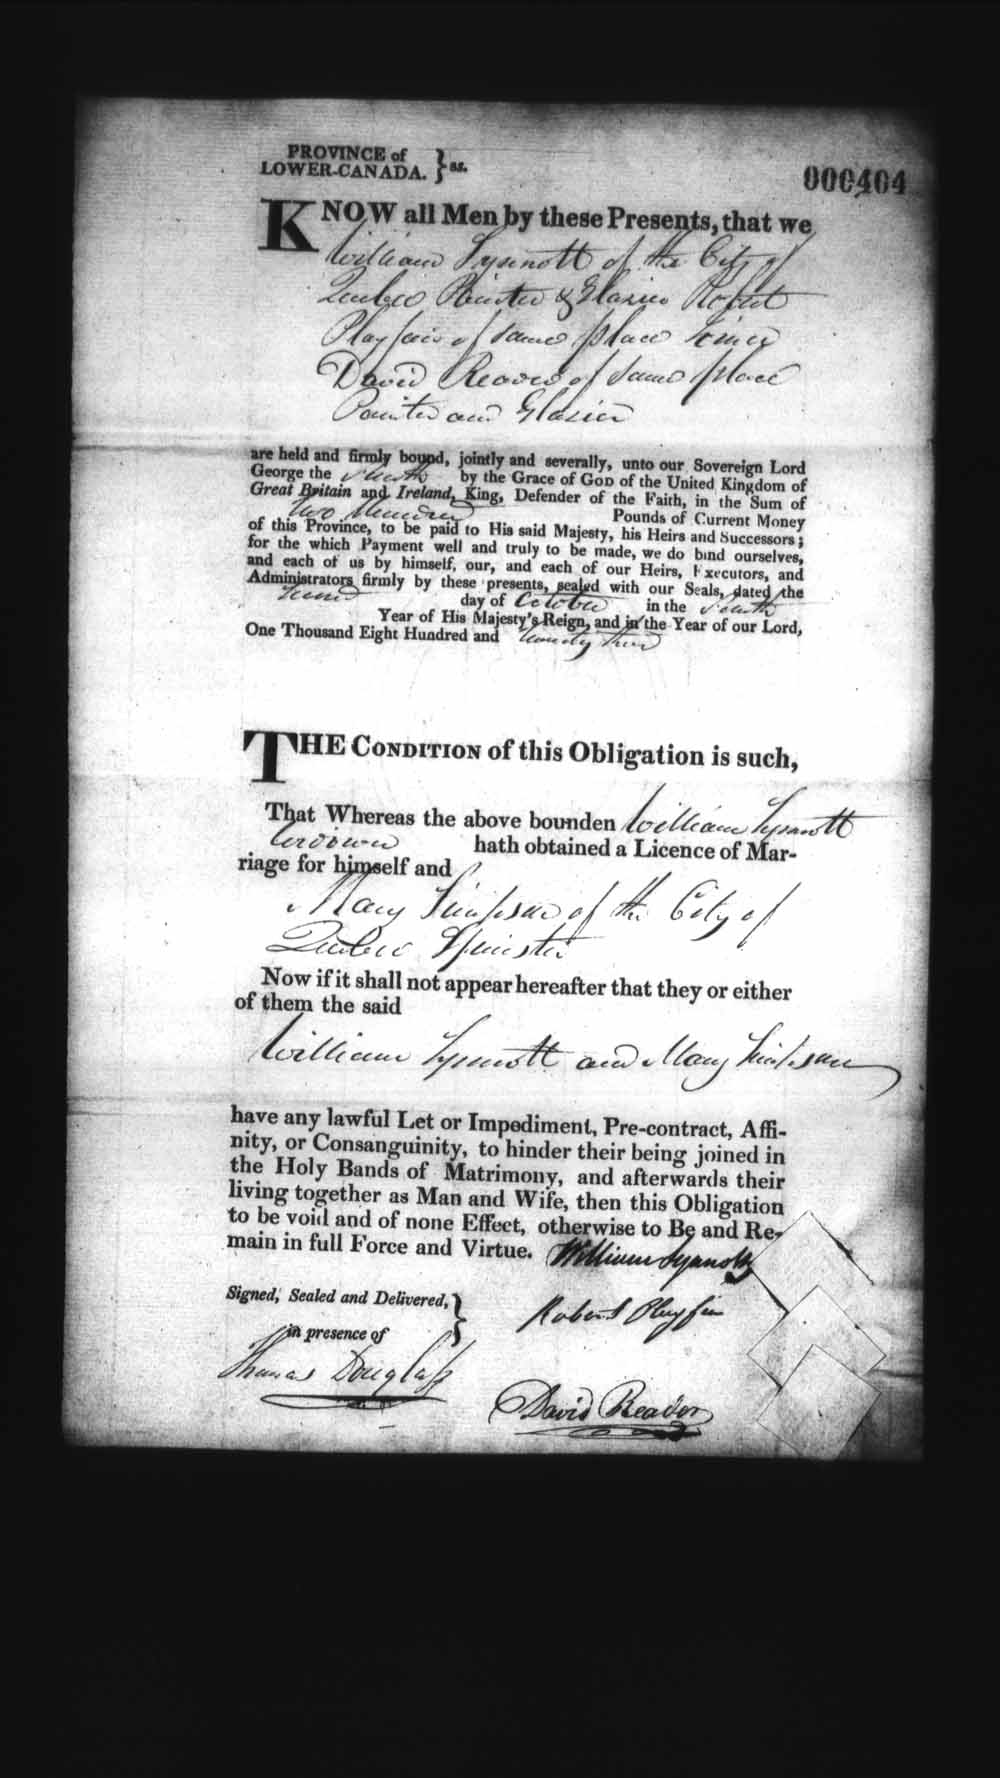 PROVINCE of
LOWER-CANADA. } ss.
000404
KNOW all Men by these Presents, that we
William Synnott of the City of
Quebec Painter & Glazier Robert
Playfair of same place
David Reador of same place
Painter and Glazier
are held and firmly bound, jointly and severally, unto our Sovereign Lord
George the by the Grace of GOD of the United Kingdom of
Great Britain and Ireland, King, Defender of the Faith, in the Sum of
Two Hundred Pounds of Current Money
of this Province, to be paid to His said Majesty, his Heirs and Successors;
for the which Payment well and truly to be made, we do bind ourselves,
and each of us by himself, our, and each of our Heirs, Executors, and
Administrators firmly by these presents, sealed with our Seals, dated the
day of October in the Fourth
Year of His Majesty's Reign, and in the Year of our Lord,
One Thousand Eight Hundred and twenty three
THE CONDITION of this Obligation is such,
That Whereas the above bounden William Synnott
hath obtained a Licence of Mar-
riage for himself and
Mary Simpson of the City of
Quebec Spinster
Now if it shall not appear hereafter that they or either
of them the said
William Synnott and Mary Simpson
have any lawful Let or Impediment, Pre-contract, Affi-
nity, or Consanguinity, to hinder their being joined in
the Holy Bands of Matrimony, and afterwards their
living together as Man and Wife, then this Obligation
to be void and of none Effect, otherwise to Be and Re-
main in full Force and Virtue. William Synnott
Signed, Sealed and Delivered, }
in presence of
Robert Playfair
Thomas Douglass
David Reador